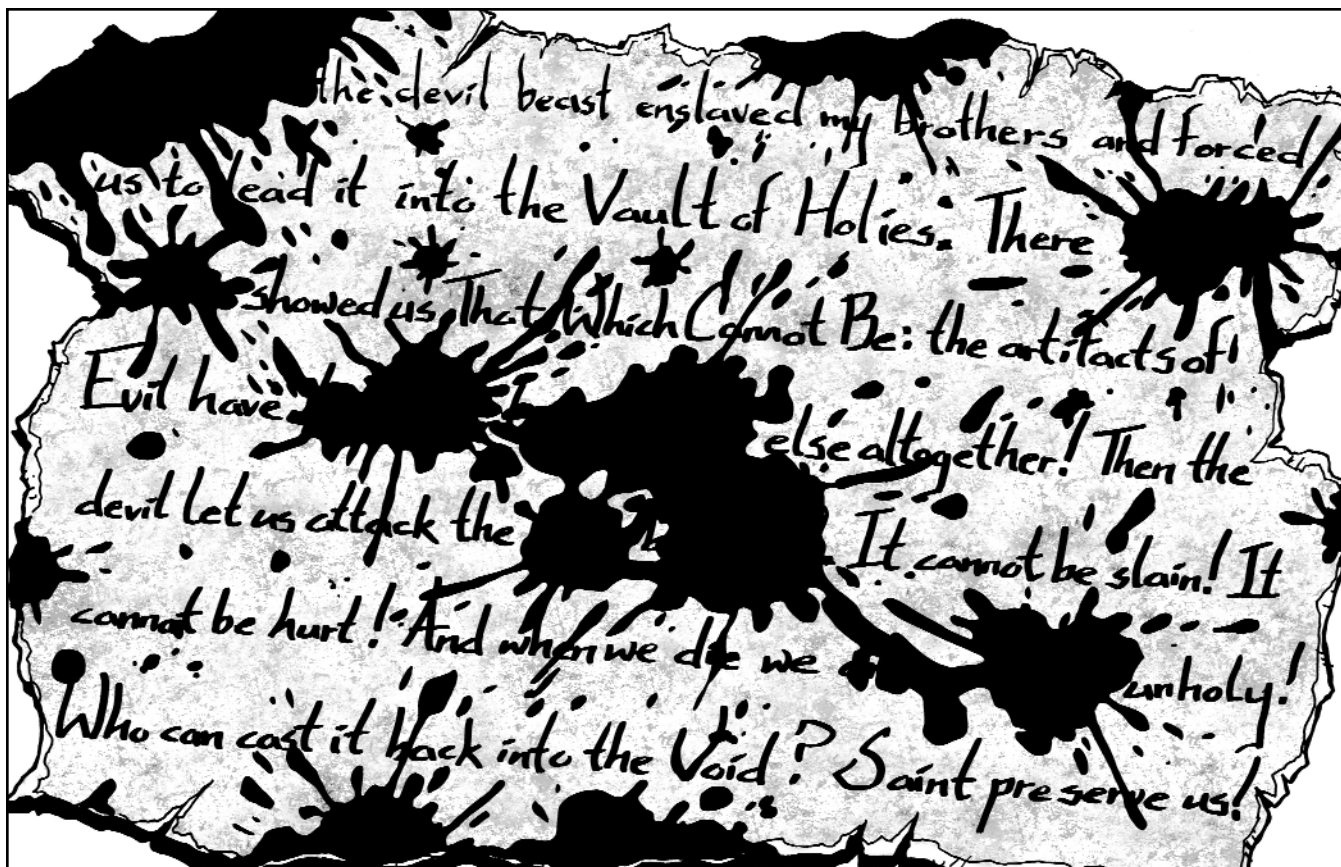 the devil beast enslaved my brothers and forced
us to lead it into the Vault of Holies. There
showed us That Which Cannot Be: the artifacts of
Evil have
else altogether! Then the
devil let us attack the
It cannot be slain! It
cannot be hurt! And when we die we
unholy!
Who can cast it back into the Void? Saint preserve us!